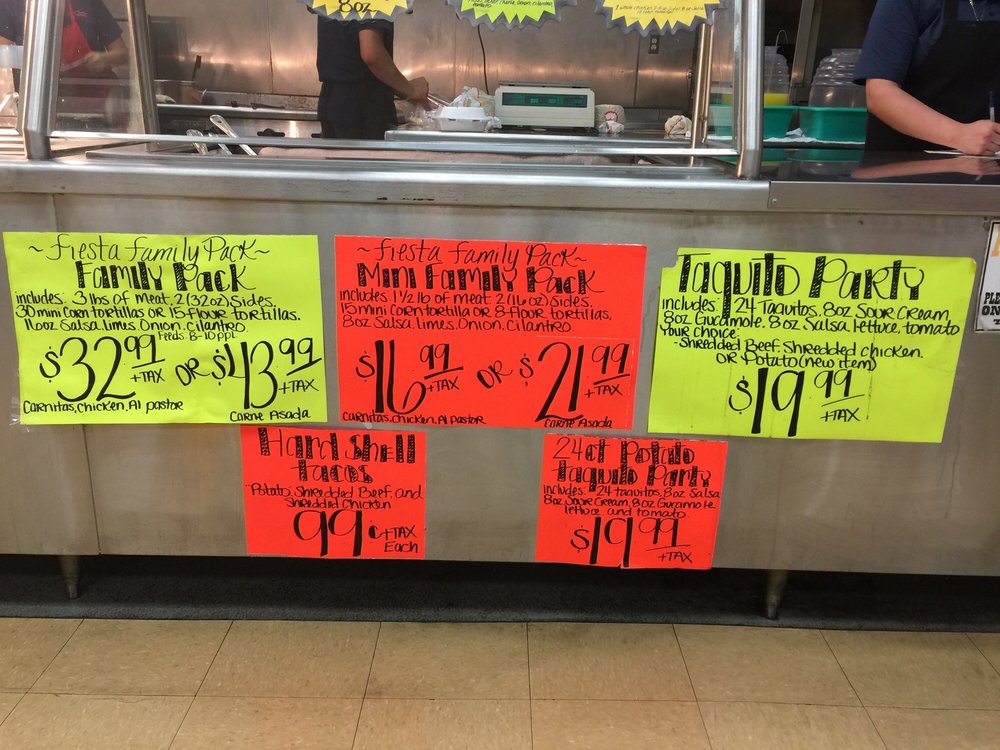 8oz
~ Fiesta Family Pack ~
Family Pack
includes: 3 lbs of meat, 2 (32oz) Sides,
30 mini Corn tortillas OR 15 flour tortillas,
16oz Salsa, limes, Onion, cilantro
Feeds 8-10 ppl
$32.99 +TAX OR $43.99 +TAX
Carnitas, Chicken, Al pastor
Carne Asada
~ Fiesta Family Pack ~
Mini Family Pack
includes 1 1/2 lb of meat 2 (16oz) Sides,
15 mini Corn tortilla or 8 flour tortillas,
8oz Salsa, limes, Onion, Cilantro
$16.99 +TAX OR $21.99 +TAX
Carnitas, Chicken, Al pastor
Carne Asada
Taquito Party
includes: 24 Taquitos, 8oz Sour Cream,
8oz Gucamole, 8oz Salsa, lettuce, tomato
Your Choice:
-Shredded Beef, Shredded chicken,
OR Potato (new item)
$19.99 +TAX
Hard Shell
tacos
Potato, Shredded Beef, and
Shredded Chicken
99¢ +TAX
Each
24ct Potato
Taquito Party
includes: 24 taquitos, 8oz Salsa
8oz Sour Cream, 8oz Gucamole,
lettuce, and tomato
$19.99 +TAX